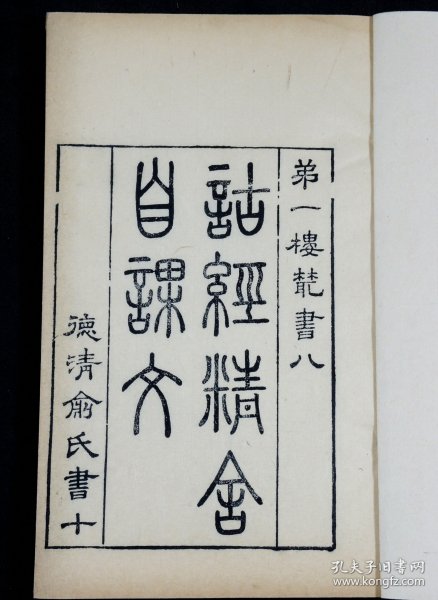 弟一樓叢書八
詁經精舍
自課文
德清俞氏書十
孔夫子旧书网
www.kongfz.com